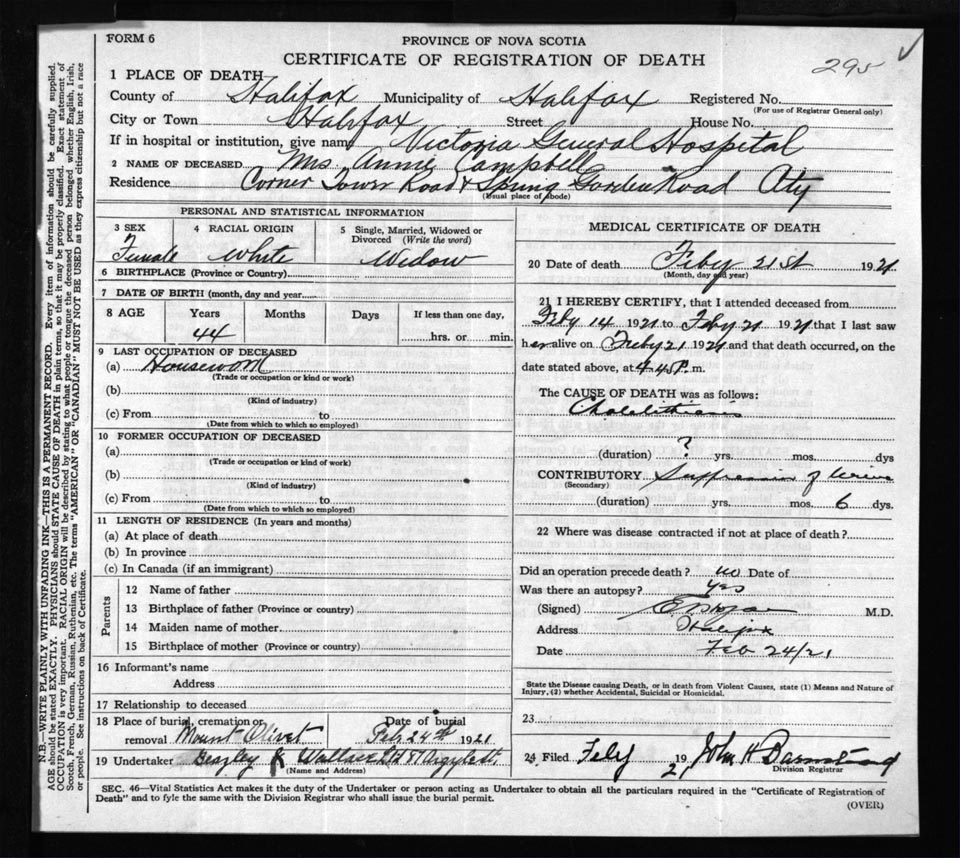 FORM 6
PROVINCE OF NOVA SCOTIA
CERTIFICATE OF REGISTRATION OF DEATH
295
1 PLACE OF DEATH
County of Halifax Municipality of Halifax Registered No.
(For use of Registrar General only)
City or Town Halifax Street House No.
If in hospital or institution, give name Victoria General Hospital
2 NAME OF DECEASED Mrs. Annie Campbell
Residence Corner Tower Road & Spring Garden Road City
(Usual place of abode)
PERSONAL AND STATISTICAL INFORMATION
3 SEX 4 RACIAL ORIGIN 5 Single, Married, Widowed or Divorced (Write the word)
Female White Widow
6 BIRTHPLACE (Province or Country)
7 DATE OF BIRTH (month, day and year
8 AGE Years Months Days If less than one day,
44 hrs. or min.
9 LAST OCCUPATION OF DECEASED
(a) Housework
(Trade or occupation or kind or work)
(b)
(Kind of industry)
(c) From to
(Date from which to which so employed)
10 FORMER OCCUPATION OF DECEASED
(a)
(Trade or occupation or kind or work)
(b)
(Kind of industry)
(c) From to
(Date from which to which so employed)
11 LENGTH OF RESIDENCE (In years and months)
(a) At place of death
(b) In province
(c) In Canada (if an immigrant)
Parents
12 Name of father
13 Birthplace of father (Province or country)
14 Maiden name of mother
15 Birthplace of mother (Province or country)
16 Informant's name
Address
17 Relationship to deceased
18 Place of burial, cremation or removal Mount Olivet Date of burial Feb. 24th 1921
19 Undertaker Wallace Ltd Argyle St.
(Name and Address)
MEDICAL CERTIFICATE OF DEATH
20 Date of death Feby 21st 1921
(Month, day and year)
21 I HEREBY CERTIFY, that I attended deceased from
Feby 14 1921 to Feby 21 1921 that I last saw
her alive on Feby 21 1921 and that death occurred, on the
date stated above, at 4.45 P. m.
The CAUSE OF DEATH was as follows:
Cholelithiasis
(duration) ? yrs. mos. dys
CONTRIBUTORY Suppression of Urine
(Secondary)
(duration) yrs. mos. 6 dys.
22 Where was disease contracted if not at place of death?
Did an operation precede death? no Date of
Was there an autopsy? yes
(Signed) M.D.
Address Halifax
Date Feb 24/21
State the Disease causing Death, or in death from Violent Causes, state (1) Means and Nature of
Injury, (2) whether Accidental, Suicidal or Homicidal.
23
24 Filed Feby 1921 John H Barnstead
Division Registrar
SEC. 46—Vital Statistics Act makes it the duty of the Undertaker or person acting as Undertaker to obtain all the particulars required in the "Certificate of Registration of
Death" and to fyle the same with the Division Registrar who shall issue the burial permit.
(OVER)
N.B.—WRITE PLAINLY WITH UNFADING INK—THIS IS A PERMANENT RECORD. Every item of information should be carefully supplied.
AGE should be stated EXACTLY. PHYSICIANS should STATE CAUSE OF DEATH in plain terms, so that it may be properly classified. Exact statement of
OCCUPATION is very important. RACIAL ORIGIN will be described by stating to what people or tongue the deceased person belonged whether English, Irish,
Scotch, French, German, Russian, Ruthenian, etc. The terms "AMERICAN" OR "CANADIAN" MUST NOT BE USED as they express citizenship but not a race
or people. See instructions on back of Certificate.